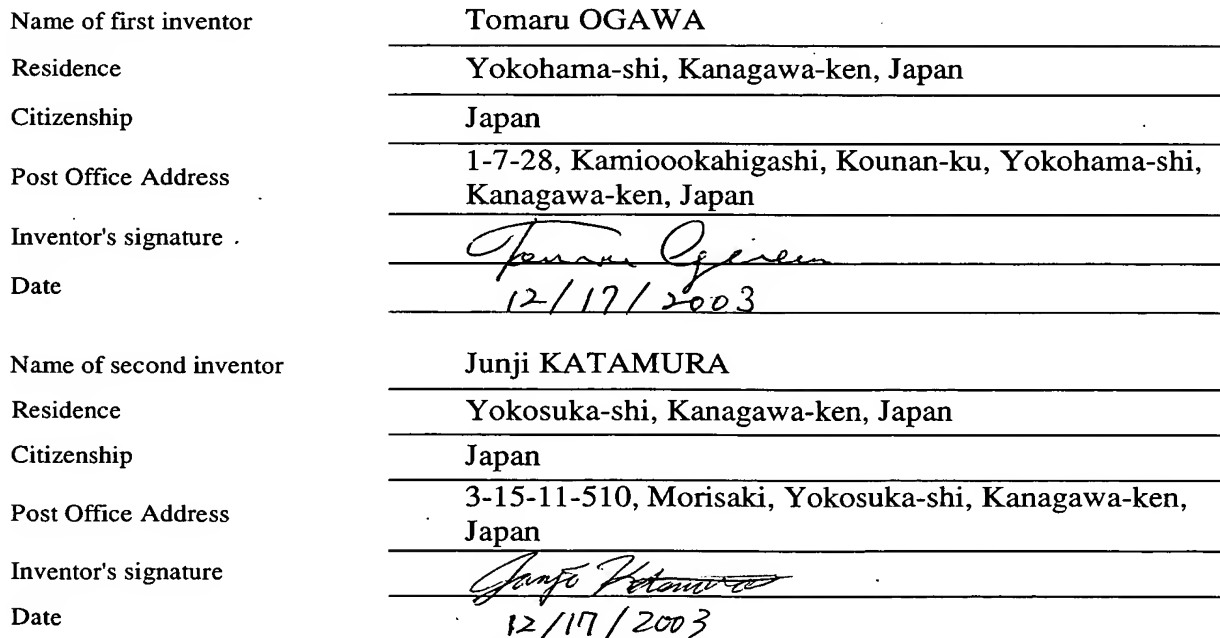 Name of first inventor Tomaru OGAWA
Residence Yokohama-shi, Kanagawa-ken, Japan
Citizenship Japan
Post Office Address 1-7-28, Kamioookahigashi, Kounan-ku, Yokohama-shi,
Kanagawa-ken, Japan
Inventor's signature
Date 12/17/2003
Name of second inventor Junji KATAMURA
Residence Yokosuka-shi, Kanagawa-ken, Japan
Citizenship Japan
Post Office Address 3-15-11-510, Morisaki, Yokosuka-shi, Kanagawa-ken,
Japan
Inventor's signature
Date 12/17/2003